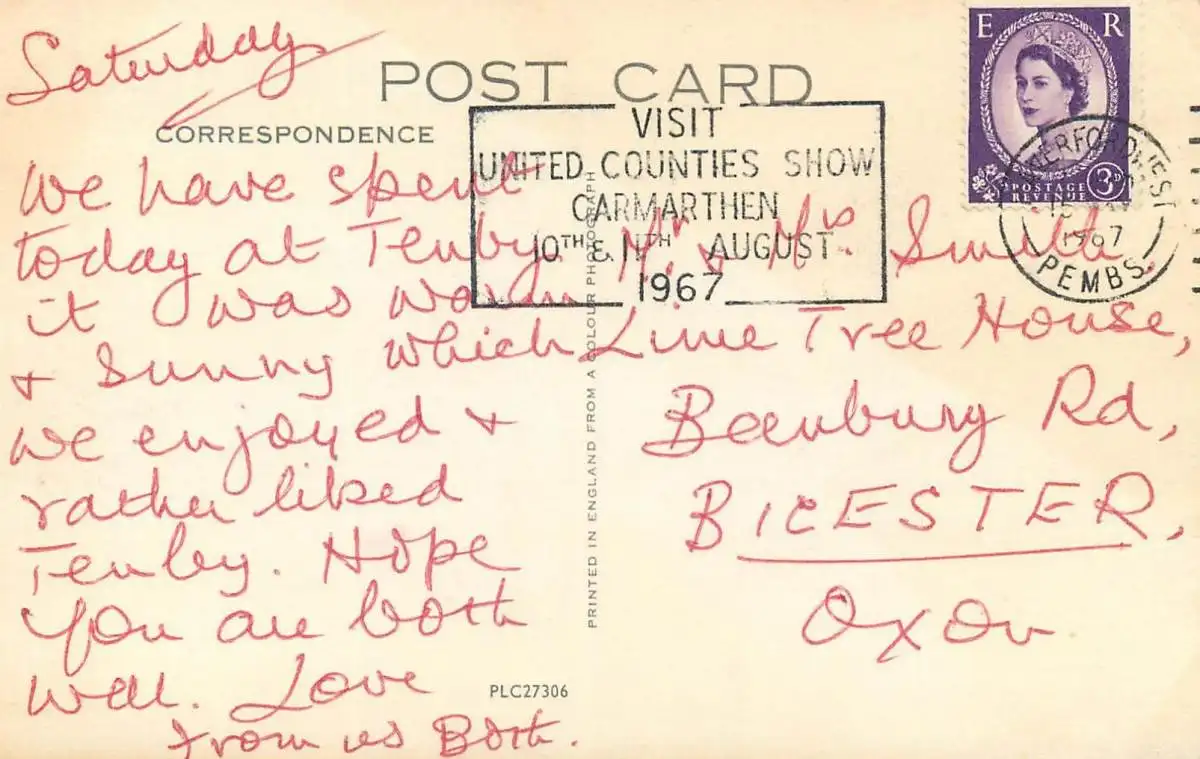 Saturday
POST CARD
CORRESPONDENCE
We have spent
today at Tenby.
it was warm
& sunny which
we enjoyed &
rather liked
Tenby. Hope
you are both
well. Love
from us Both.
PLC27306
PRINTED IN ENGLAND FROM A COLOUR PHOTOGRAPH
VISIT
UNITED COUNTIES SHOW
CARMARTHEN
10TH & 11TH AUGUST
1967
E R
POSTAGE
REVENUE
3D
HAVERFORDWEST
1967
PEMBS
Mr & Mrs. Smith.
Lime Tree House,
Banbury Rd,
BICESTER,
Oxon